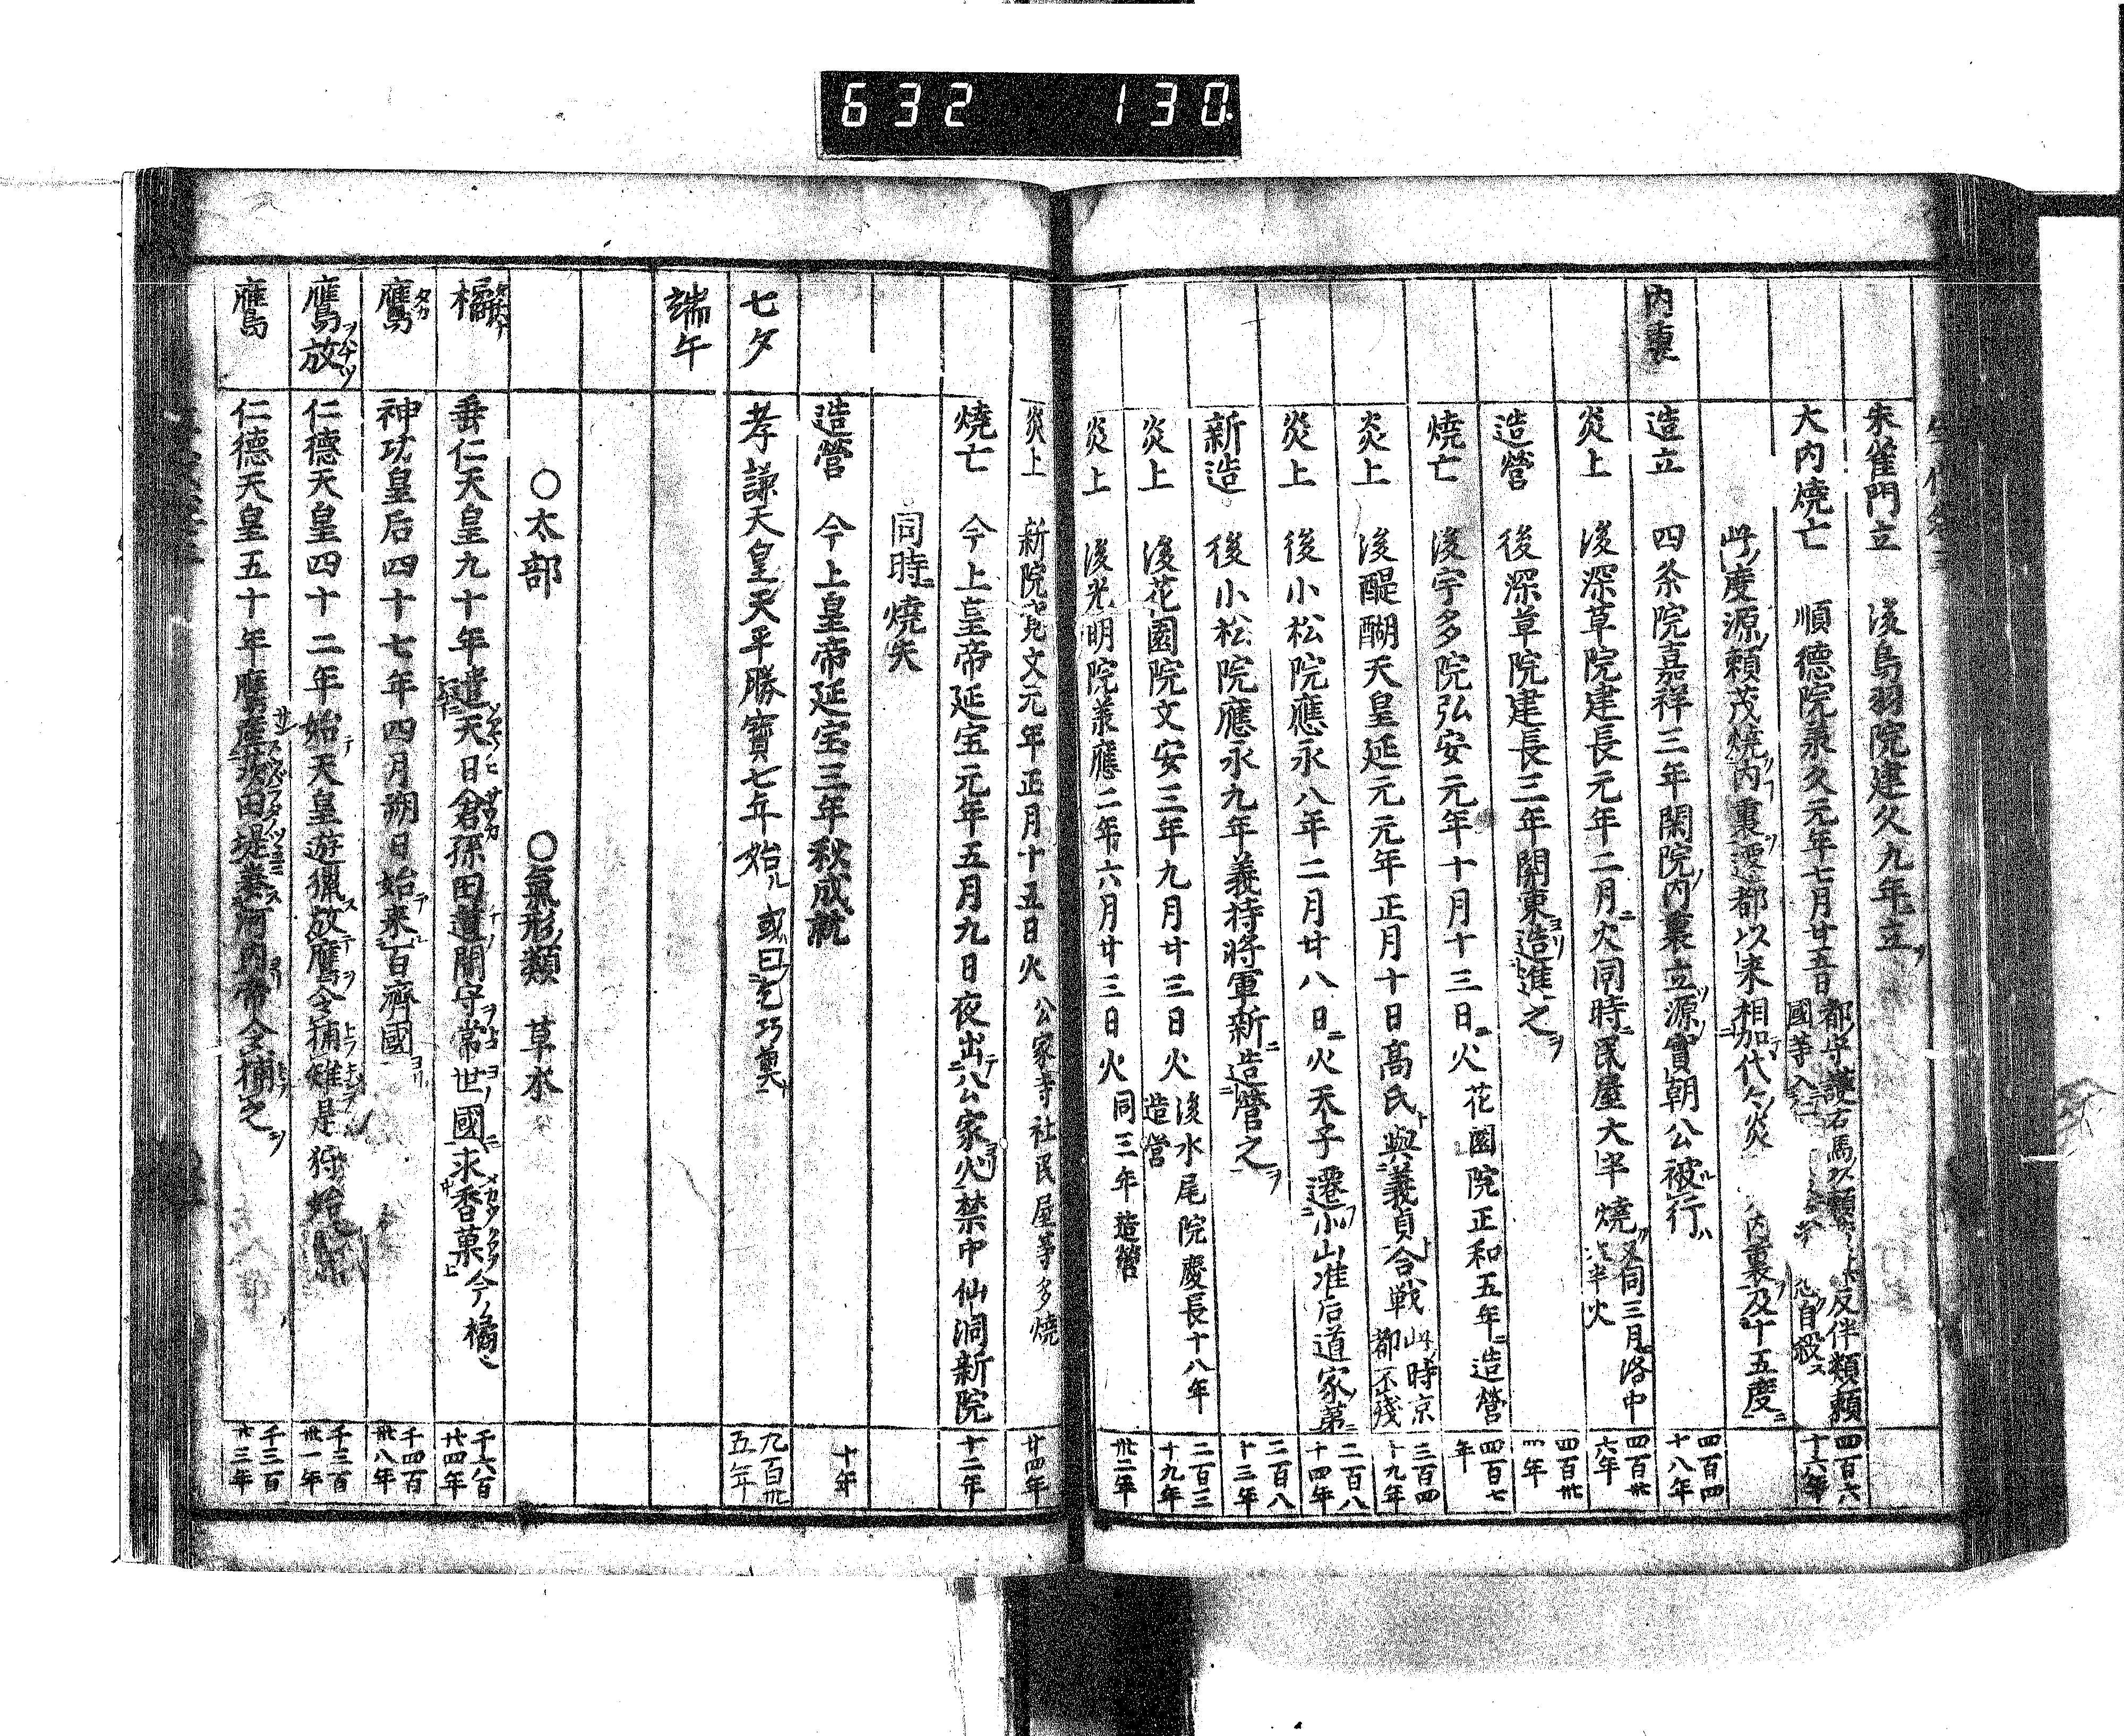 632 130
朱雀門立 後鳥羽院建久九年立
大内燒亡 順德院承久元年七月廿五日
都守護右馬 反伴類頼
國等入 自殺
四百六
十六年
此度源頼茂燒内裏遷都以来相加代々炎 内裏及十五度
内裏
造立 四条院嘉祥三年閑院内裏立源實朝公被行
四百四
十八年
炎上 後深草院建長元年二月火同時民屋大半燒
又同三月洛中
半火
四百卅
六年
造營 後深草院建長三年關東造進之
四百卅
年
燒亡 後宇多院弘安元年十月十三日火 花園院正和五年造營
四百七
年
炎上 後醍醐天皇延元元年正月十日高氏與義貞合戦
此時京
都不殘
三百四
十九年
炎上 後小松院應永八年二月廿八日火天子遷小山准后道家第
二百八
十四年
新造 後小松院應永九年義持將軍新造營之
二百八
十三年
炎上 後花園院文安三年九月廿三日火
後水尾院慶長十八年
造営
二百三
十九年
炎上 後光明院羕應二年六月廿三日火 同三年造營
卅二年
炎上 新院寛文元年正月十五日火 公家寺社民屋等多燒
廿四年
燒亡 今上皇帝延宝元年五月九日夜出公家火禁中仙洞新院
十二年
同時ニ燒失
造營 今上皇帝延宝三年秋成就
十年
七夕 孝謙天皇天平勝寶七年始ル或曰乞巧奠
九百卅
五年
端午
〇太部 〇氣形類 草木
橘 垂仁天皇九十年遣天日倉孫田道間守常世國求香菓今橘
千六百
廿四年
鷹 タカ 神功皇后四十七年四月朔日始来百濟國ヨリ
千四百
卅八年
鷹放 仁德天皇四十二年始天皇遊猟放鷹令捕雉是狩始
千三百
卅一年
鷹 仁德天皇五十年鷹産茨田堤奏河内帝令捕之
千三百
廿三年